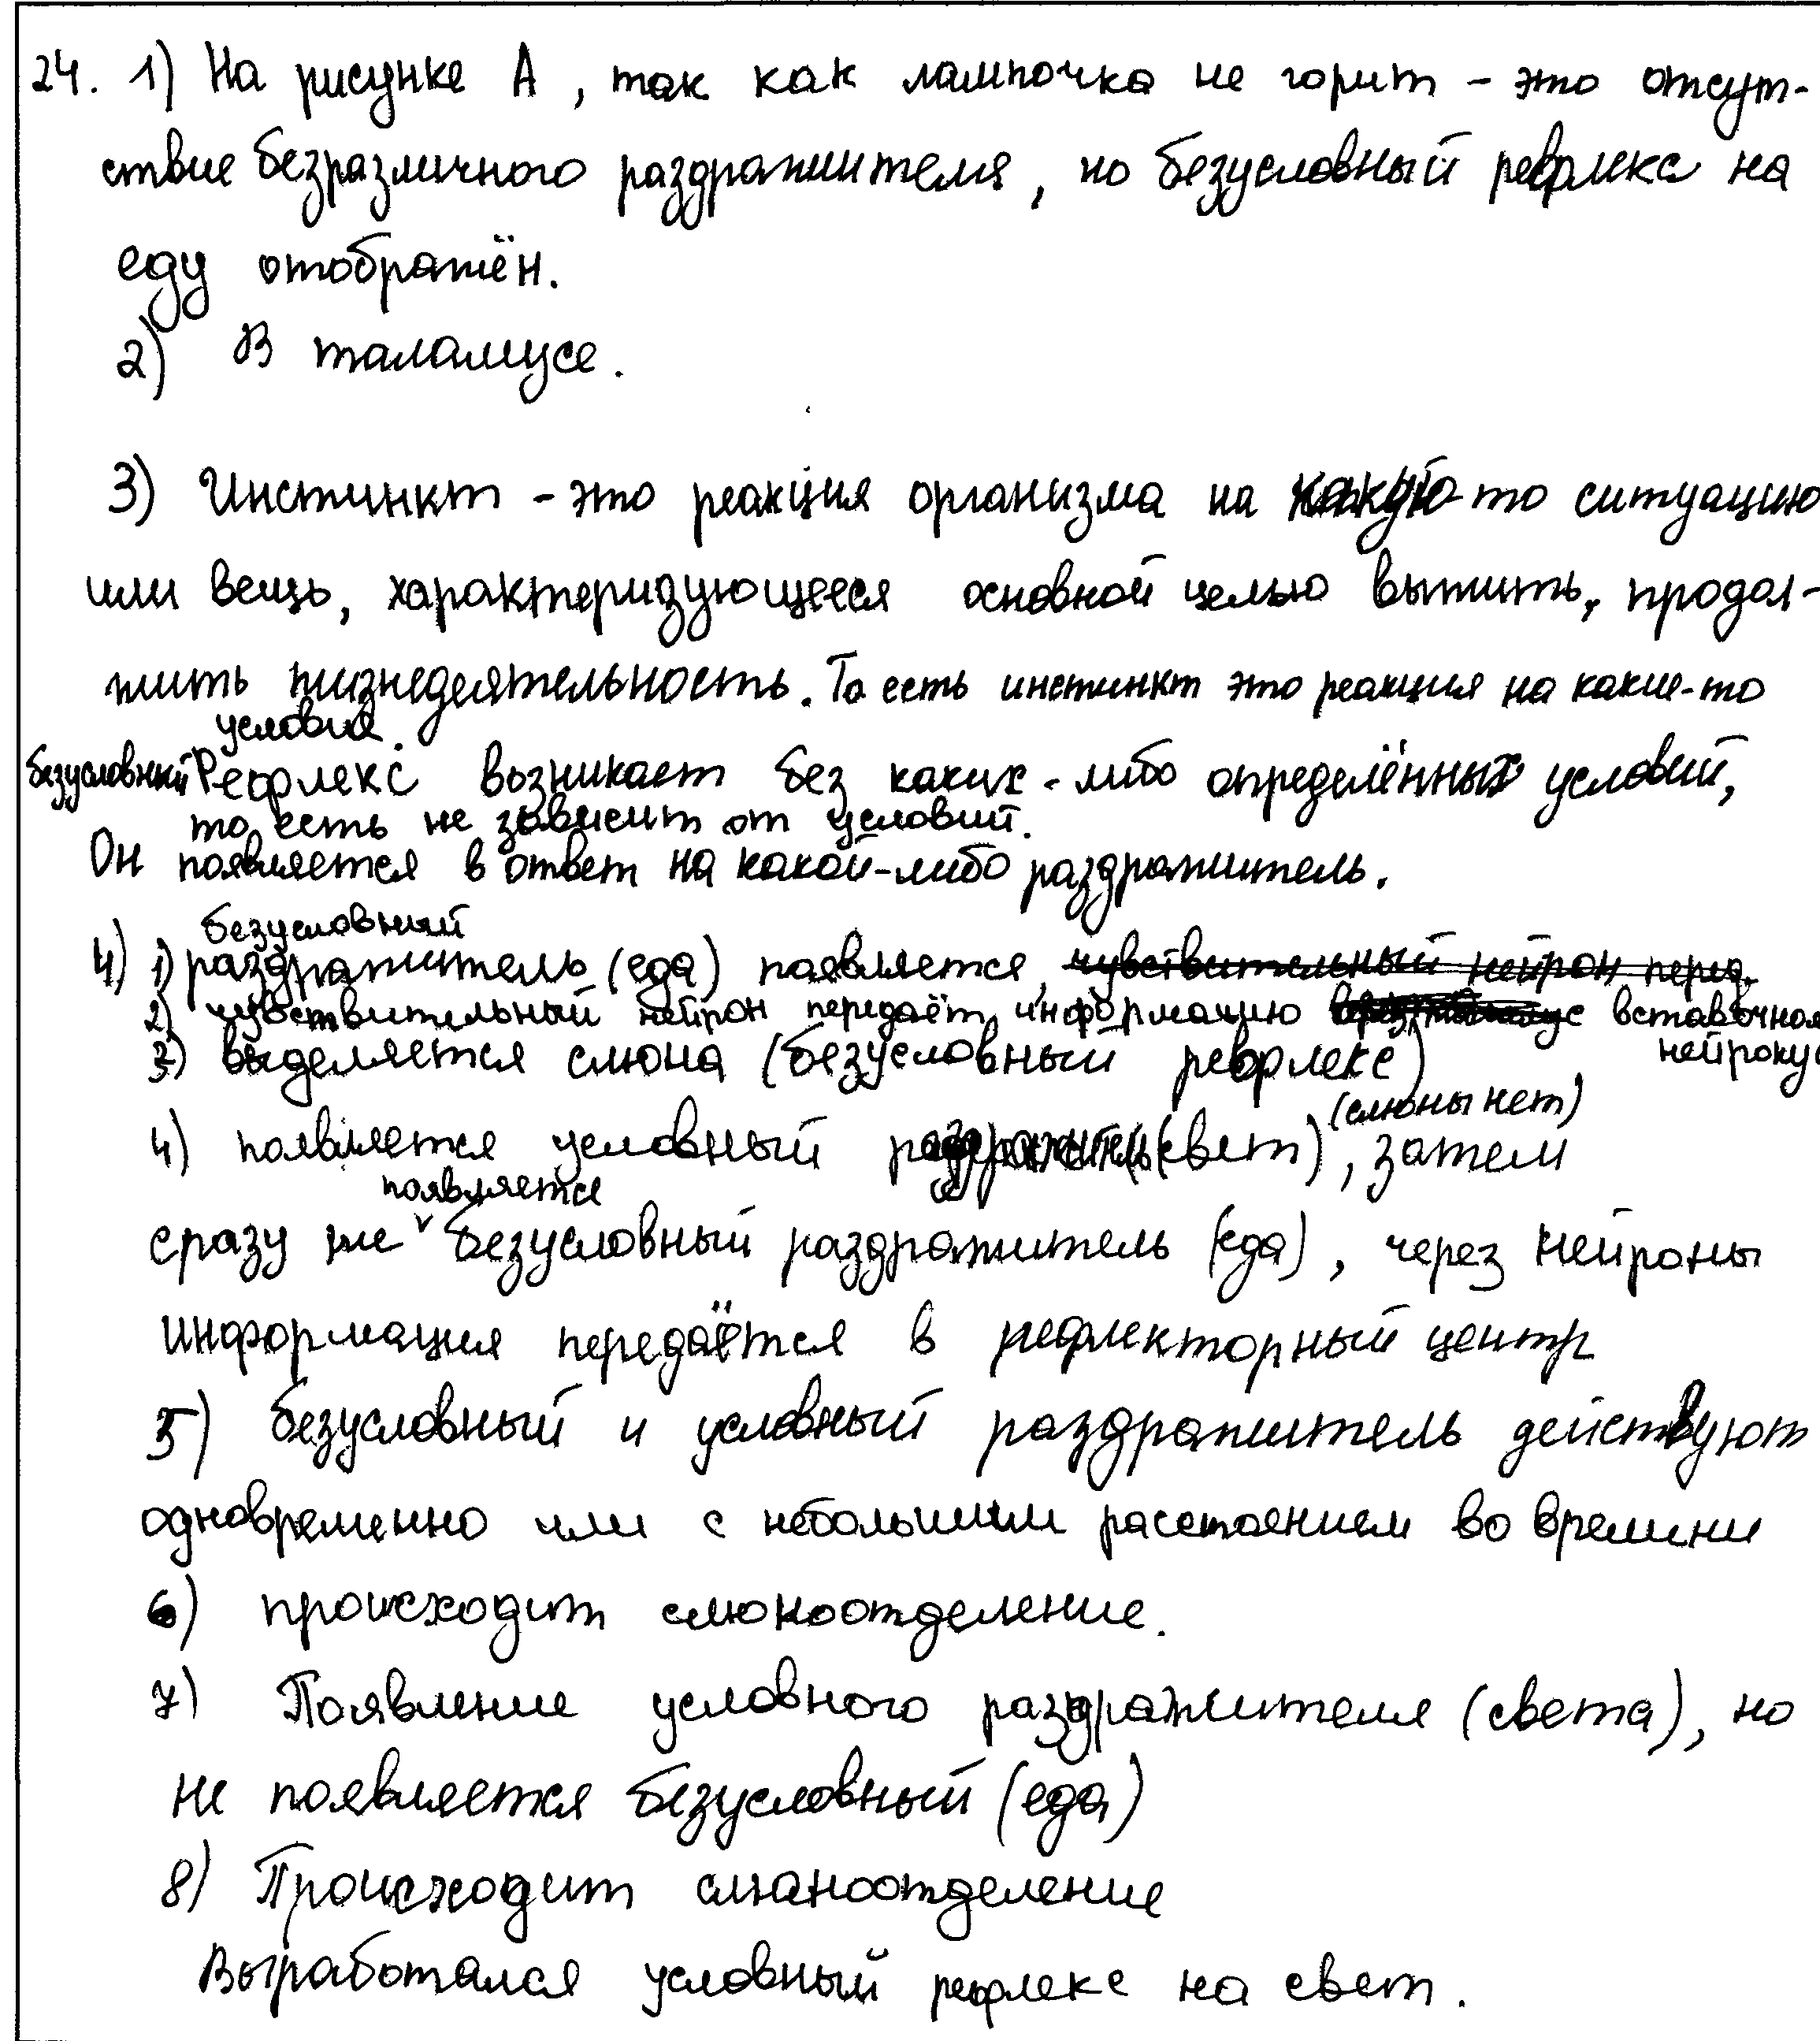 24. 1) На рисунке А, так как лампочка не горит - это отсут-
ствие безразличного раздражителя, но безусловный рефлекс на
еду отображён.
2) В таламусе.
3) Инстинкт - это реакция организма на какую-то ситуацию
или вещь, характеризующееся основной целью выжить, продол-
жить жизнедеятельность. То есть инстинкт это реакция на какие-то
условия.
безусловный Рефлекс возникает без каких-либо определённых условий,
то есть не зависит от условий.
Он появляется в ответ на какой-либо раздражитель.
безусловный
4) 1) раздражитель (еда) появляется, чувствительный нейрон перед.
2) чувствительный нейрон передаёт информацию вставочному
нейрону
3) выделяется слюна (безусловный рефлекс)
(слюны нет)
4) появляется условный раздражитель (свет), затем
появляется
сразу же безусловный раздражитель (еда), через нейроны
информация передаётся в рефлекторный центр
5) безусловный и условный раздражитель действуют
одновременно или с небольшим расстоянием во времени
6) происходит слюноотделение.
7) Появление условного раздражителя (света), но
не появляется безусловный (еда)
8) Происходит слюноотделение
Выработался условный рефлекс на свет.